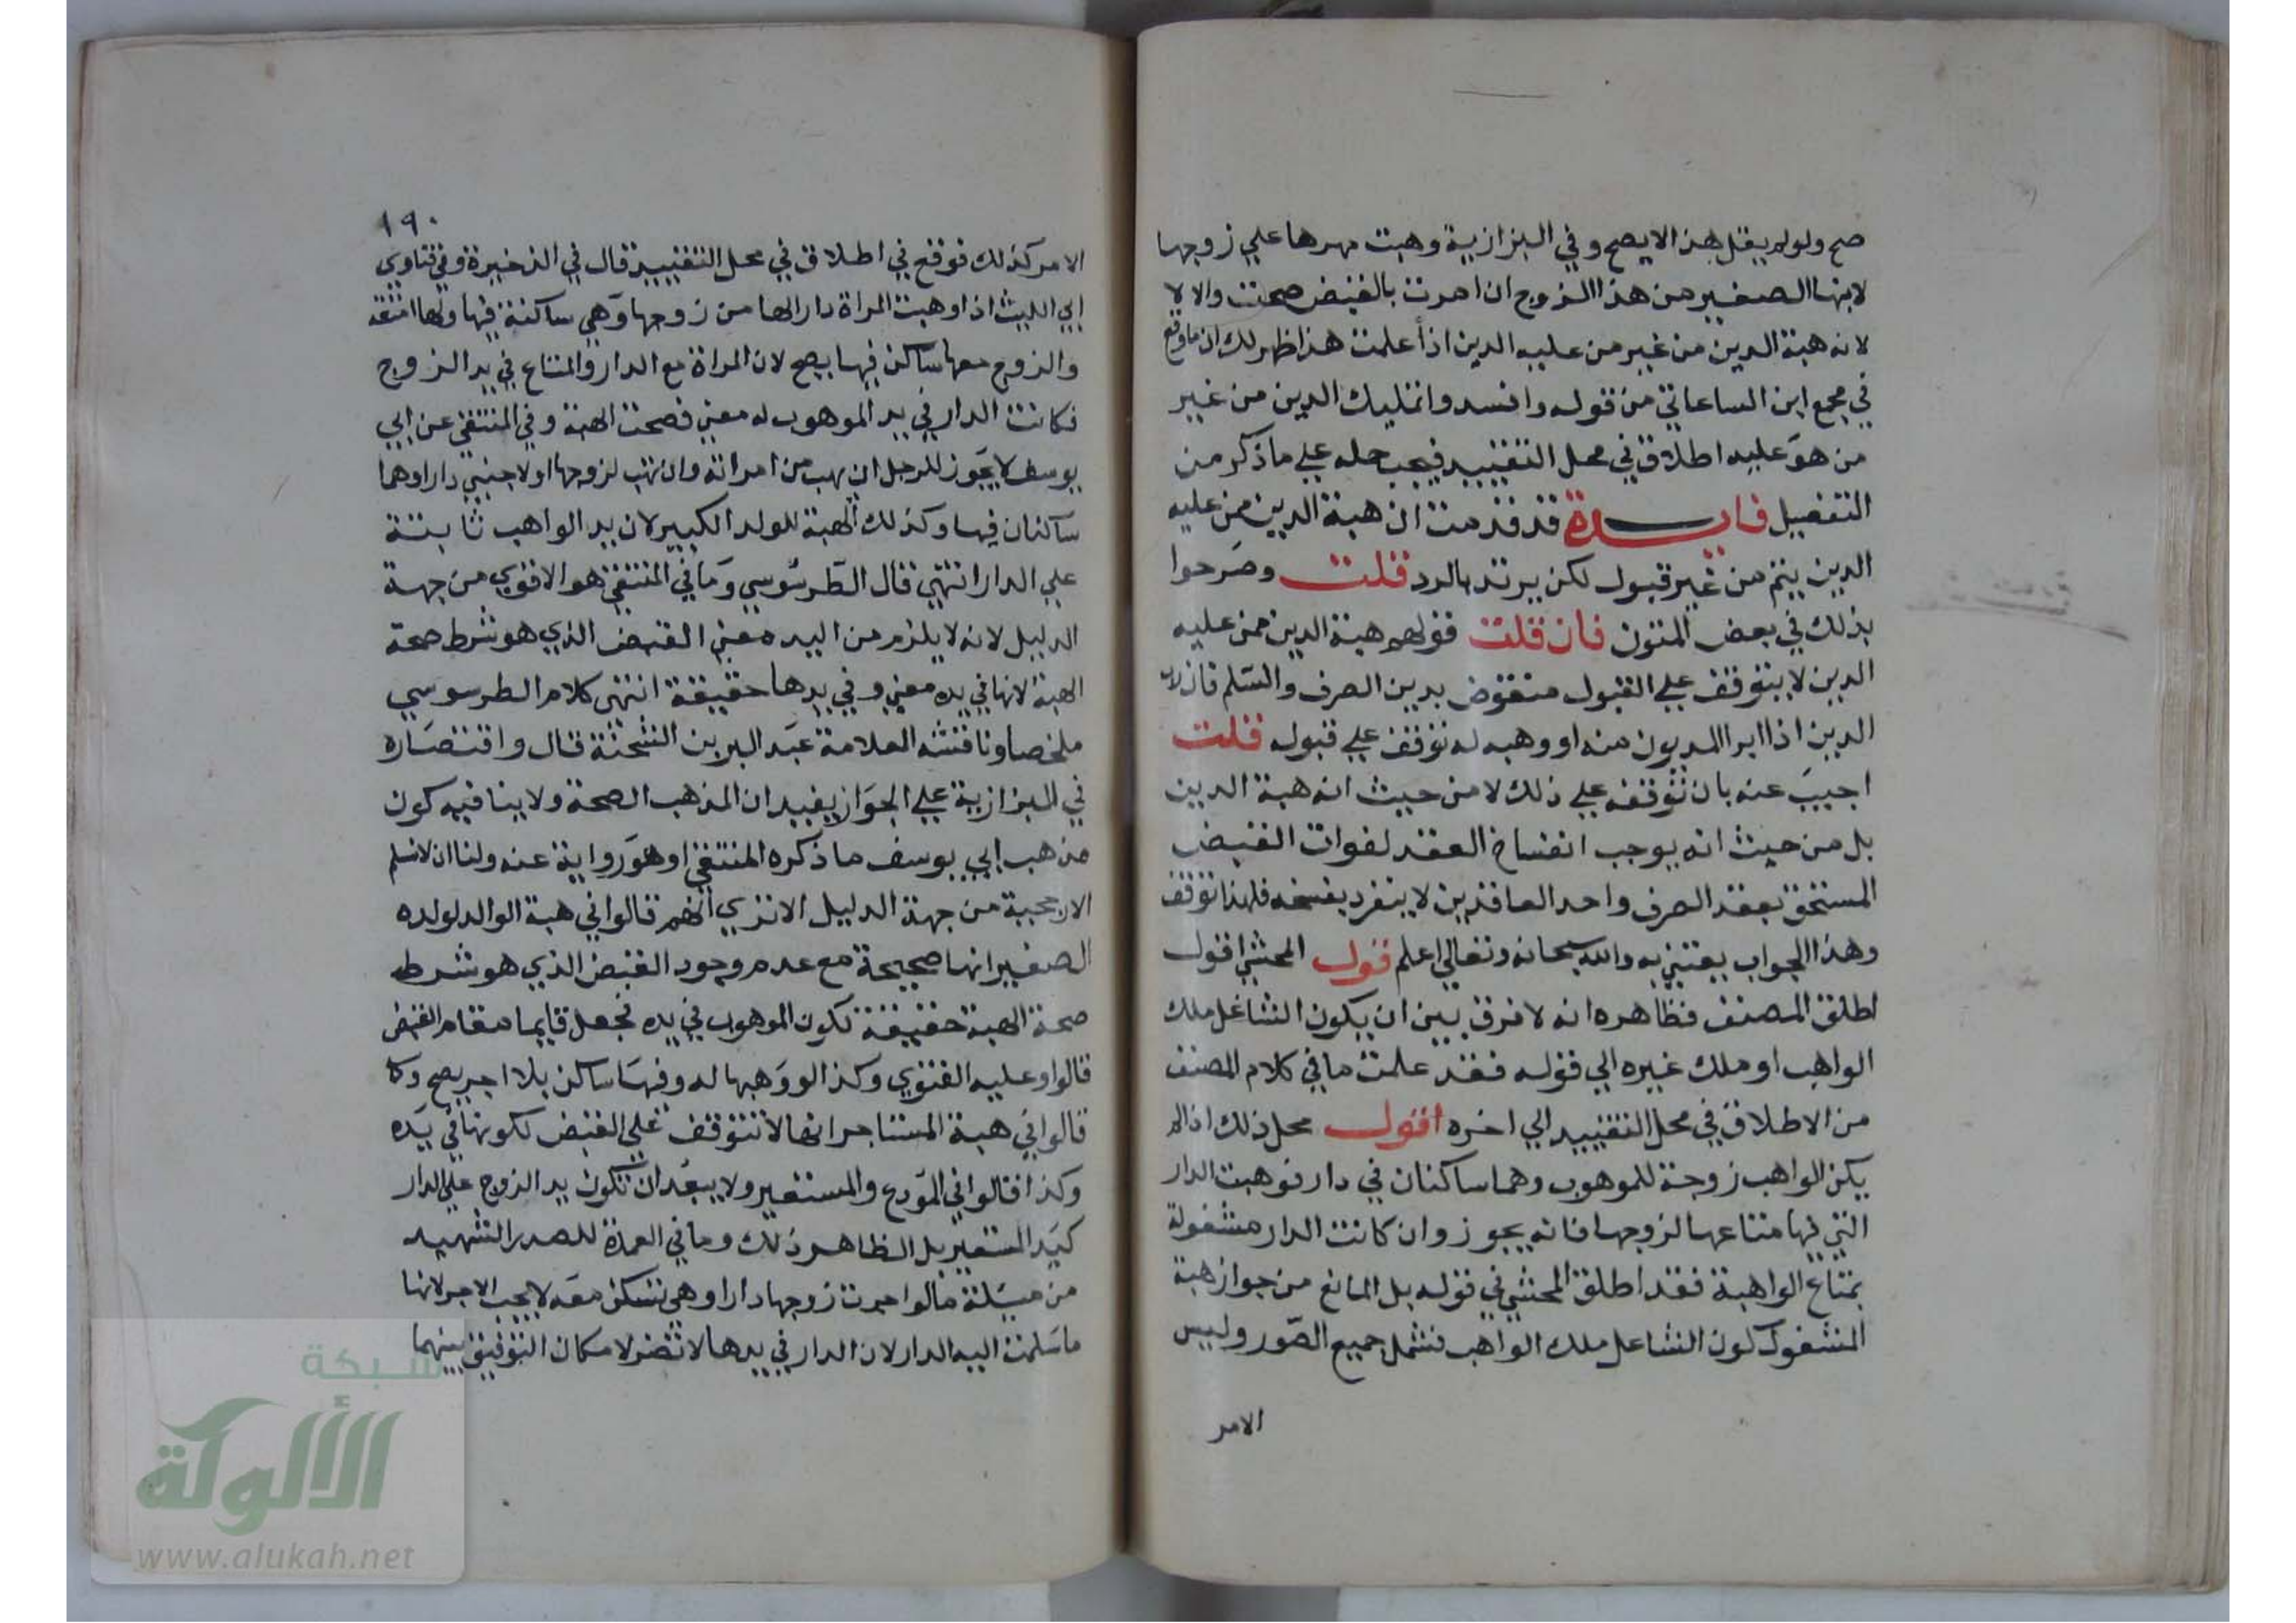 صح ولو لم يقل هذا لا يصح وفي البزازية وهبت مهرها علي زوجها
لابنها الصغير من هذا الزوج ان امرت بالقبض صحت والا لا
لانه هبة الدين من غير من عليه الدين اذا علمت هذا ظهر لك ان ما وقع
في مجمع ابن الساعاتي من قوله وافسدوا تمليك الدين من غير
من هو عليه اطلاق في محل التقييد فيجب حمله علي ما ذكر من
التفصيل فايدة قد قدمت ان هبة الدين ممن عليه
الدين يتم من غير قبول لكن يرتد بالرد قلت وصرحوا
بذلك في بعض المتون فان قلت قولهم هبة الدين ممن عليه
الدين لا يتوقف علي القبول منقوض بدين الصرف والسلم فان رب
الدين اذا ابرا المديون منه او وهبه له توقف علي قبوله قلت
اجيب عنه بان توقفه علي ذلك لا من حيث انه هبة الدين
بل من حيث انه يوجب انفساخ العقد لفوات القبض
المستحق بعقد الصرف واحد العاقدين لا ينفرد بفسخه فلهذا توقف
وهذا الجواب يعتني به والله سبحانه وتعالي اعلم قول المحشي اقول
اطلق المصنف فظاهره انه لا فرق بين ان يكون الشاغل ملك
الواهب او ملك غيره الي قوله فقد علمت ما في كلام المصنف
من الاطلاق في محل التقييد الي اخره اقول محل ذلك اذا لم
يكن الواهب زوجة للموهوب وهما ساكنان في دار فوهبت الدار
التي فيها متاعها لزوجها فانه يجوز وان كانت الدار مشغولة
بمتاع الواهبة فقد اطلق المحشي في قوله بل المانع من جواز هبة
المشغول كون الشاغل ملك الواهب فشمل جميع الصور وليس
الامر
١٩٠
الامر كذلك فوقع في اطلاق في محل التقييد قال في الذخيرة وفي فتاوي
ابي الليث اذا وهبت المراة دارا لها من زوجها وهي ساكنة فيها ولها امتعة
والزوج معها ساكن فيها يصح لان المراة مع الدار والمتاع في يد الزوج
فكانت الدار في يد الموهوب له معني فصحت الهبة وفي المنتقي عن ابي
يوسف لا يجوز للرجل ان يهب من امراته وان تهب لزوجها او لاجنبي دارا وهما
ساكنان فيها وكذلك الهبة للولد الكبير لان يد الواهب ثابتة
علي الدار انتهي قال الطرسوسي وما في المنتقي هو الاقوي من جهة
الدليل لانه لا يلزم من اليد معني القبض الذي هو شرط صحة
الهبة لانها في يده معني وفي يدها حقيقة انتهى كلام الطرسوسي
ملخصا وناقشه العلامة عبد البر بن الشحنة قال واقتصاره
في البزازية علي الجواز يفيد ان المذهب الصحة ولا ينافيه كون
مذهب ابي يوسف ما ذكره المنتقي او هو رواية عنه ولنا ان لا نسلم
الارجحية من جهة الدليل الا تري انهم قالوا في هبة الوالد لولده
الصغير انها صحيحة مع عدم وجود القبض الذي هو شرط
صحة الهبة حقيقة لكون الموهوب في يده فجعل قايما مقام القبض
قالوا وعليه الفتوي وكذا لو وهبها له وفيها ساكن بلا اجر يصح وكا
قالوا في هبة المستاجر انها لا تتوقف علي القبض لكونها في يده
وكذا قالوا في المودع والمستعير ولا يبعد ان تكون يد الزوج علي الدار
كيد المستعير بل الظاهر ذلك وما في العمدة للصدر الشهيد
من مسيلة ما لو اجرت زوجها دارا وهي تسكن معه لا يجب الاجر لانها
ما سلمت اليه الدار لان الدار في يدها لا تضر لامكان التوفيق بينهما
شبكة
الألوكة
www.alukah.net